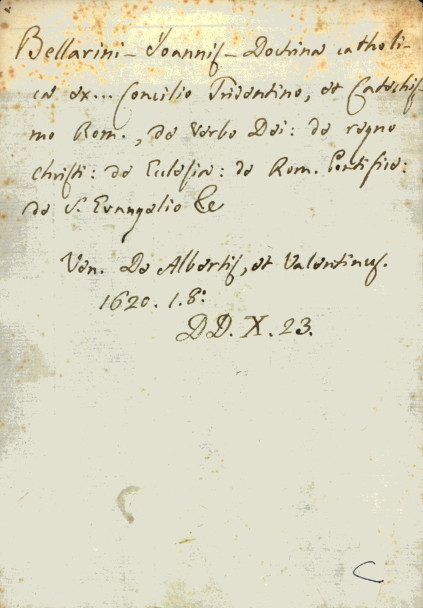 Bellarini - Joannis - Doctrina catholi-
ca ex... Concilio Tridentino, et Catechis-
mo Rom., de Verbo Dei: de regno
Christi: de Eclesia: de Rom. Pontifice:
de S. Evangelio &c
Ven. De Albertis, et Valentinus.
1620. 1. 8:
DD. X. 23.
C